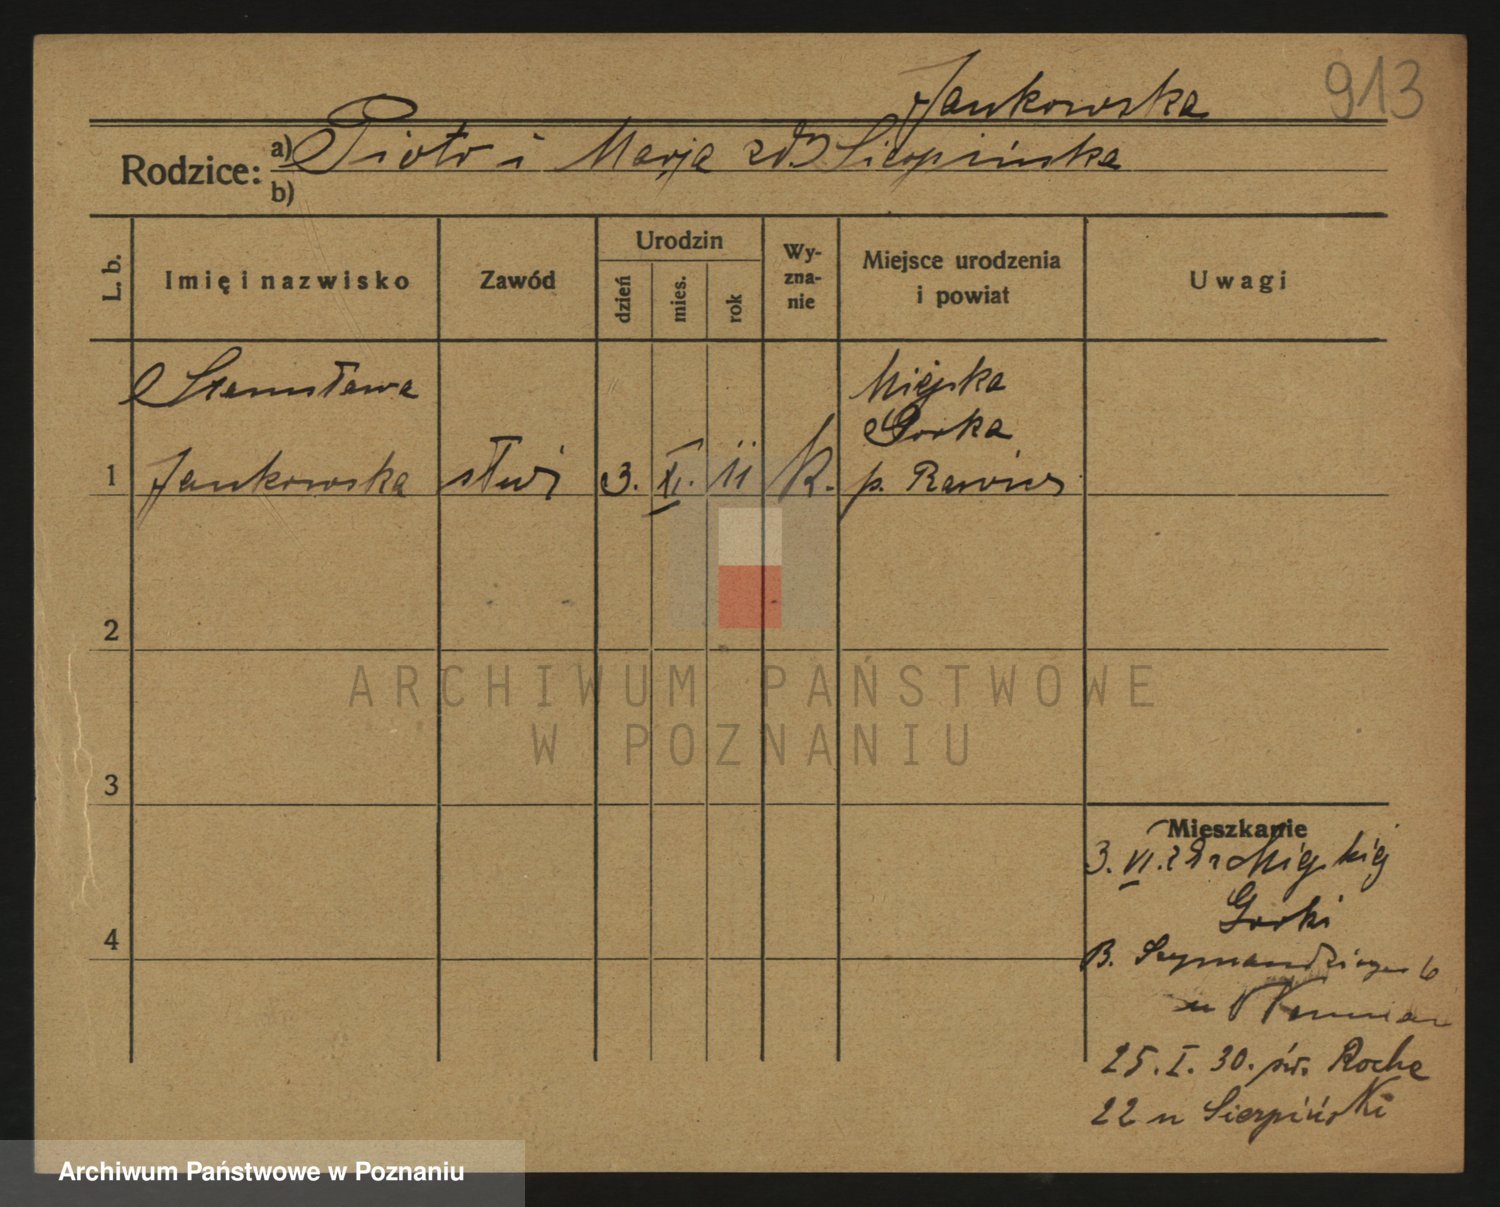 Jankowska
913
Rodzice:
a) Piotr i Marja zd. Sierpińska
b)
L. b.
Imię i nazwisko
Zawód
Urodzin
dzień
mies.
rok
Wy-
zna-
nie
Miejsce urodzenia
i powiat
Uwagi
Stanisława
Miejska
Gorka
1 Jankowska służ 3. XI. 11 K. p. Rawicz
2
3
4
Mieszkanie
3. VI. z Miejskiej
Gorki
B. 6
u
25. I. 30. św. Rocha
22 u Sierpiński
ARCHIWUM PAŃSTWOWE
W POZNANIU
Archiwum Państwowe w Poznaniu